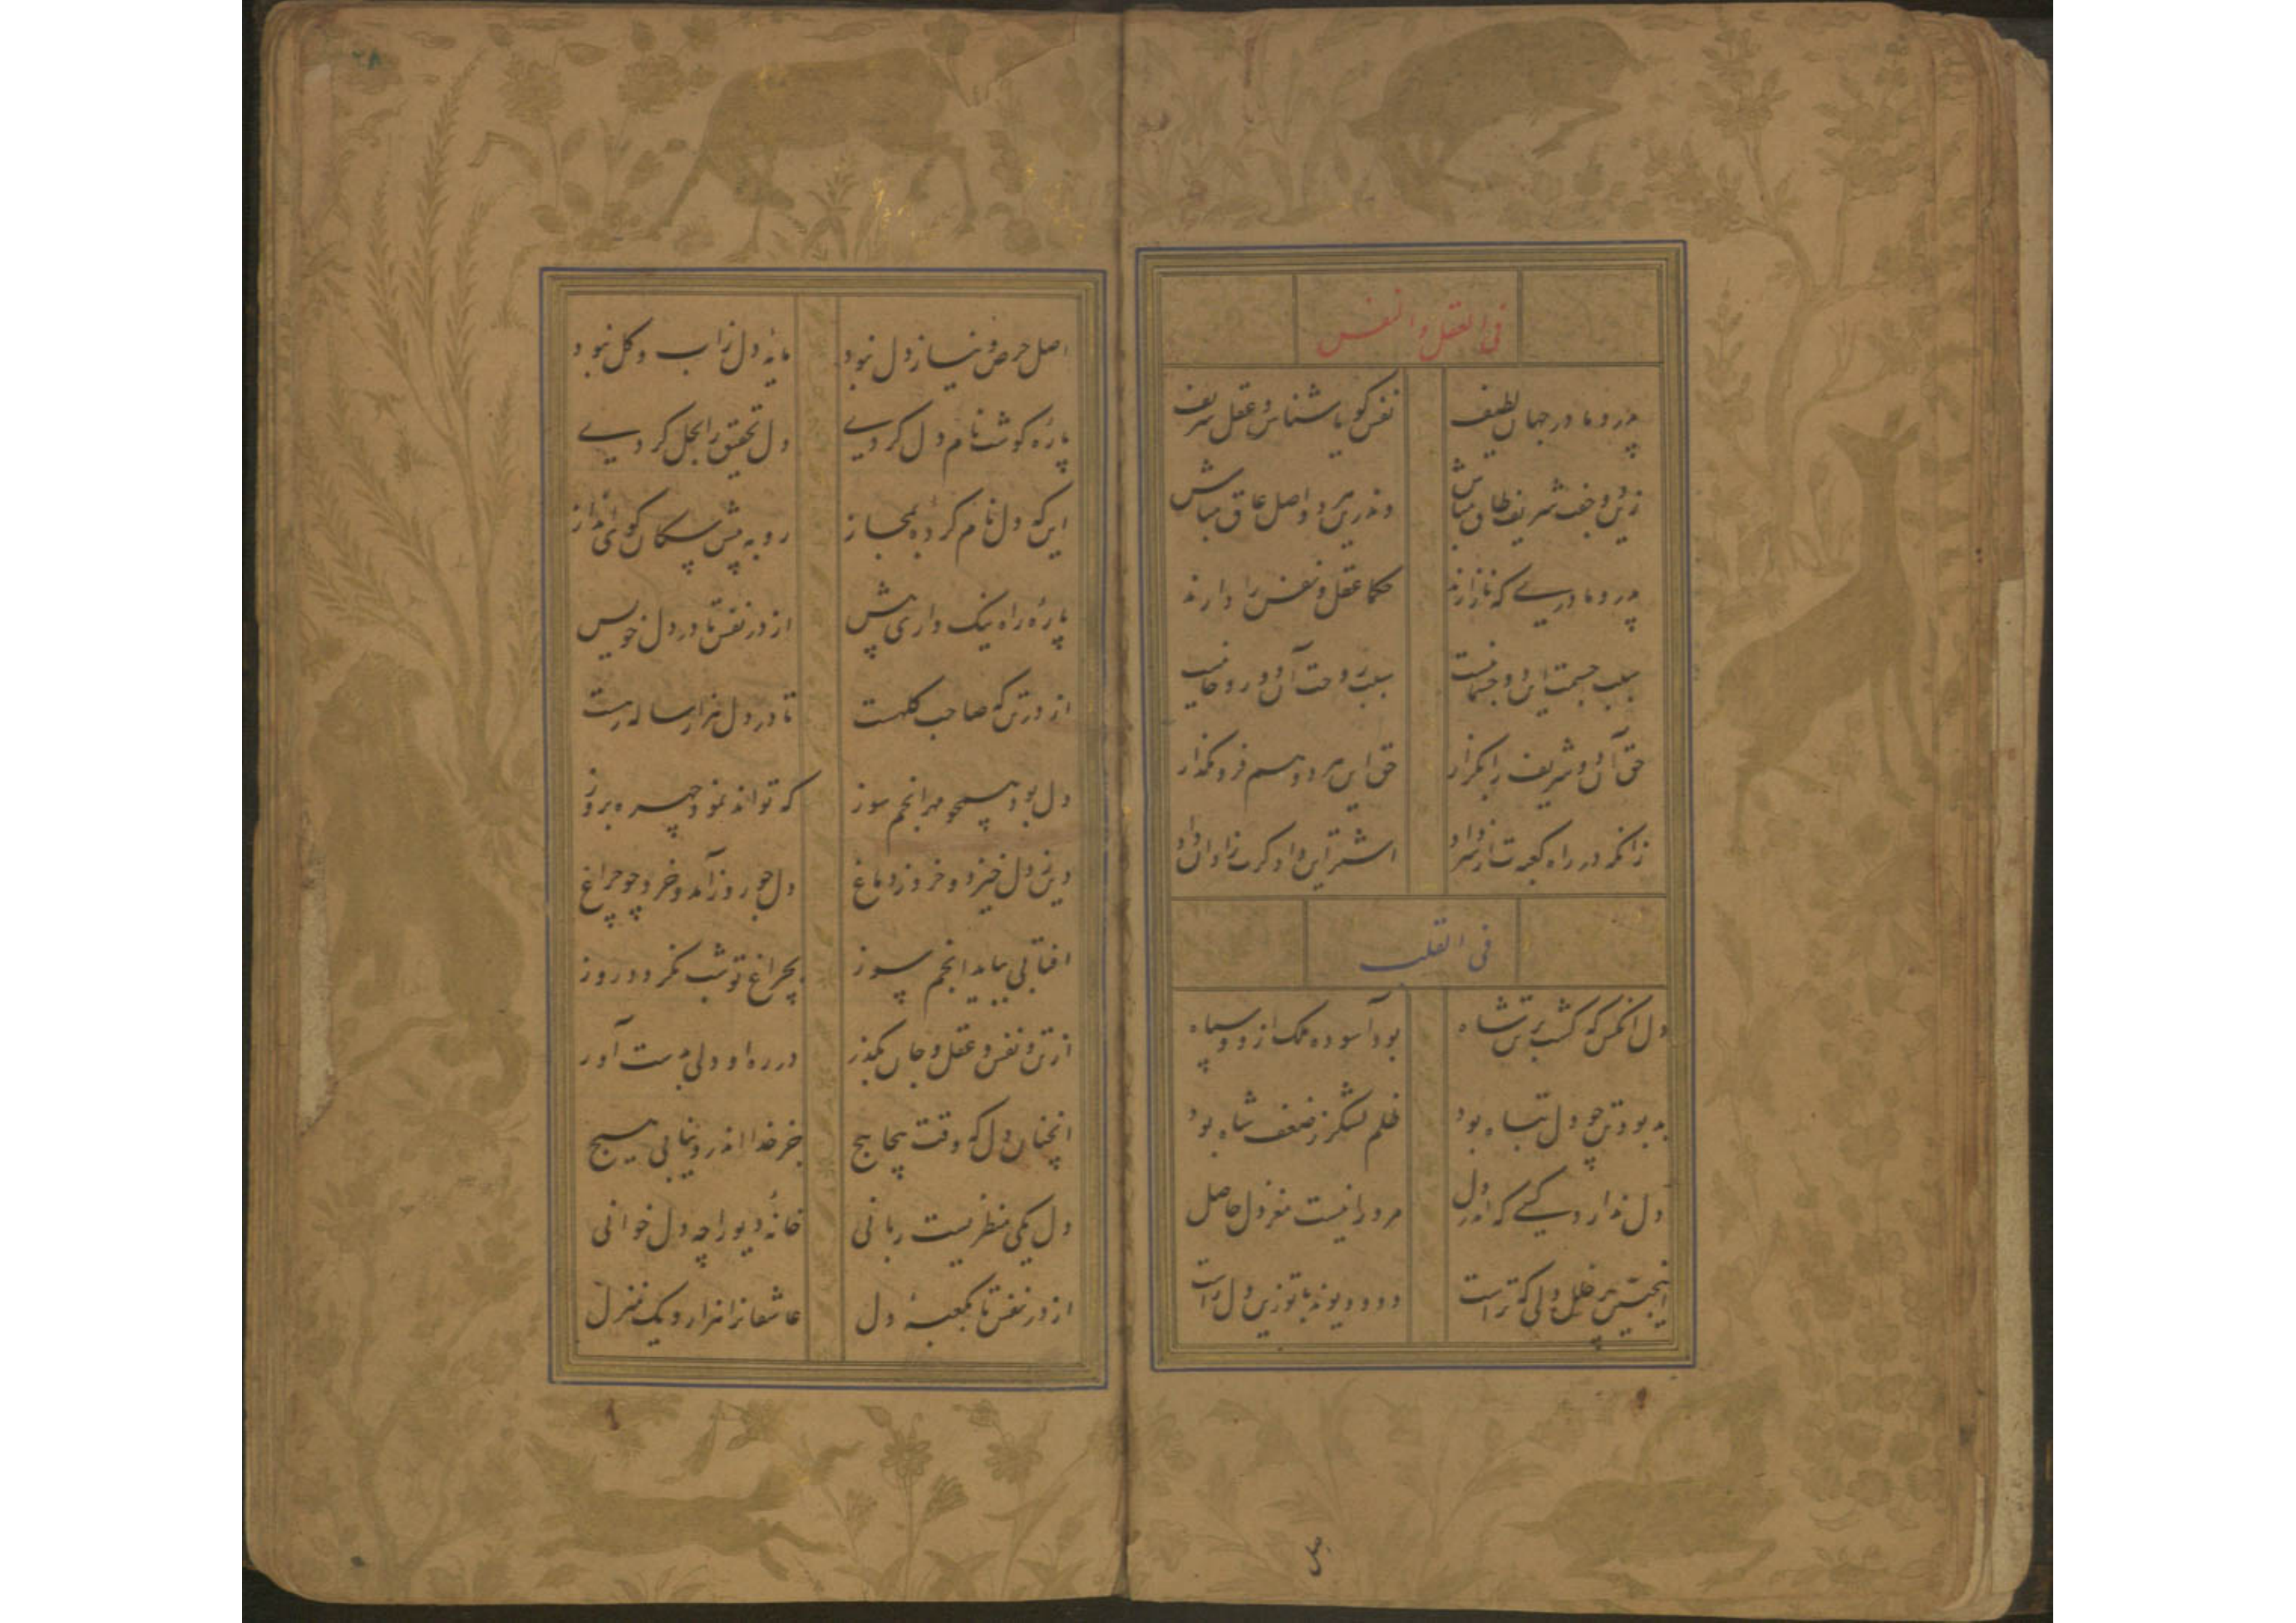 فی العقل والنفس
پدر و مادر جهان لطیف
نفس کویا شناس و عقل شریف
زین دو جفت شریف طاق مباش
وندرین هر دو اصل عاق مباش
پدر و مادری که نازارند
حکما عقل و نفس را دارند
سبب جسمت این دو جسمانیست
سبب روحت آن دو روحانیست
حق آن دو شریف را بگزار
حق این هر دو هم فرو مگذار
زانکه در راه
اشتر این داد کرت زاد آن داد
فی القلب
دل آنکس که کشت بر تن شاه
بود آسوده ملک ازو و سپاه
بد بود تن چو دل تباه بود
ظلم لشکر ز ضعف شاه بود
دل ندارد کسی که اندر دل
مر ورا نیست مغز دل حاصل
اینچنین پر خلل دلی که تراست
دد و دیوند با تو زین دل راست
اصل حرص و نیاز دل نبود
مایهٔ دل ز آب و کل نبود
پارهٔ کوشت نام دل کردی
دل تحقیق را بحل کردی
این که دل نام کردهٔ بمجاز
رو به پیش سکان کوی انداز
پارهٔ راه نیک داری پیش
از در نفس تا در دل خویش
از در تن که صاحب کلهست
تا در دل هزار ساله رهست
دل بود همچو مهر انجم سوز
که تواند نمود چهره بروز
دین ز دل خیزد و خرد ز دماغ
دل چو روز آمد و خرد چو چراغ
افتابی بباید انجم سوز
بچراغ تو شب نکردد روز
از تن و نفس و عقل و جان بگذر
در ره او دلی بدست آور
انچنان دل که وقت پیچاپیچ
جز خدا اندرو نیابی هیچ
دل یکی منظریست ربانی
خانهٔ دیو را چه دل خوانی
از در نفس تا بکعبهٔ دل
عاشقانرا هزار و یک منزل
اصل